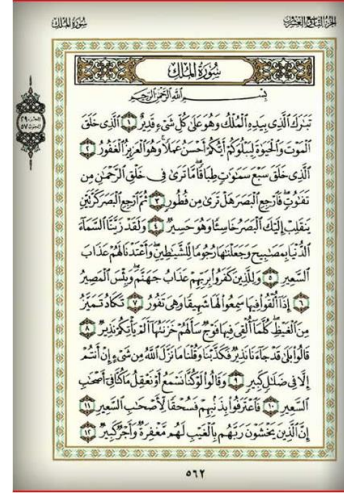 سُورَةُ المُلْكِ
الجزء التاسع والعشرون
سُورَةُ المُلْكِ
بِسْمِ اللَّهِ الرَّحْمَٰنِ الرَّحِيمِ
تَبَٰرَكَ الَّذِي بِيَدِهِ الْمُلْكُ وَهُوَ عَلَىٰ كُلِّ شَيْءٍ قَدِيرٌ ١ الَّذِي خَلَقَ
الْمَوْتَ وَالْحَيَوٰةَ لِيَبْلُوَكُمْ أَيُّكُمْ أَحْسَنُ عَمَلًا وَهُوَ الْعَزِيزُ الْغَفُورُ ٢
الَّذِي خَلَقَ سَبْعَ سَمَٰوَٰتٍ طِبَاقًا مَّا تَرَىٰ فِي خَلْقِ الرَّحْمَٰنِ مِن
تَفَٰوُتٍ فَارْجِعِ الْبَصَرَ هَلْ تَرَىٰ مِن فُطُورٍ ٣ ثُمَّ ارْجِعِ الْبَصَرَ كَرَّتَيْنِ
يَنقَلِبْ إِلَيْكَ الْبَصَرُ خَاسِئًا وَهُوَ حَسِيرٌ ٤ وَلَقَدْ زَيَّنَّا السَّمَاءَ
الدُّنْيَا بِمَصَٰبِيحَ وَجَعَلْنَٰهَا رُجُومًا لِّلشَّيَٰطِينِ وَأَعْتَدْنَا لَهُمْ عَذَابَ
السَّعِيرِ ٥ وَلِلَّذِينَ كَفَرُوا بِرَبِّهِمْ عَذَابُ جَهَنَّمَ وَبِئْسَ الْمَصِيرُ
٦ إِذَا أُلْقُوا فِيهَا سَمِعُوا لَهَا شَهِيقًا وَهِيَ تَفُورُ ٧ تَكَادُ تَمَيَّزُ
مِنَ الْغَيْظِ كُلَّمَا أُلْقِيَ فِيهَا فَوْجٌ سَأَلَهُمْ خَزَنَتُهَا أَلَمْ يَأْتِكُمْ نَذِيرٌ ٨
قَالُوا بَلَىٰ قَدْ جَاءَنَا نَذِيرٌ فَكَذَّبْنَا وَقُلْنَا مَا نَزَّلَ اللَّهُ مِن شَيْءٍ إِنْ أَنتُمْ
إِلَّا فِي ضَلَٰلٍ كَبِيرٍ ٩ وَقَالُوا لَوْ كُنَّا نَسْمَعُ أَوْ نَعْقِلُ مَا كُنَّا فِي أَصْحَٰبِ
السَّعِيرِ ١٠ فَاعْتَرَفُوا بِذَنبِهِمْ فَسُحْقًا لِّأَصْحَٰبِ السَّعِيرِ ١١
إِنَّ الَّذِينَ يَخْشَوْنَ رَبَّهُم بِالْغَيْبِ لَهُم مَّغْفِرَةٌ وَأَجْرٌ كَبِيرٌ ١٢
٥٦٢